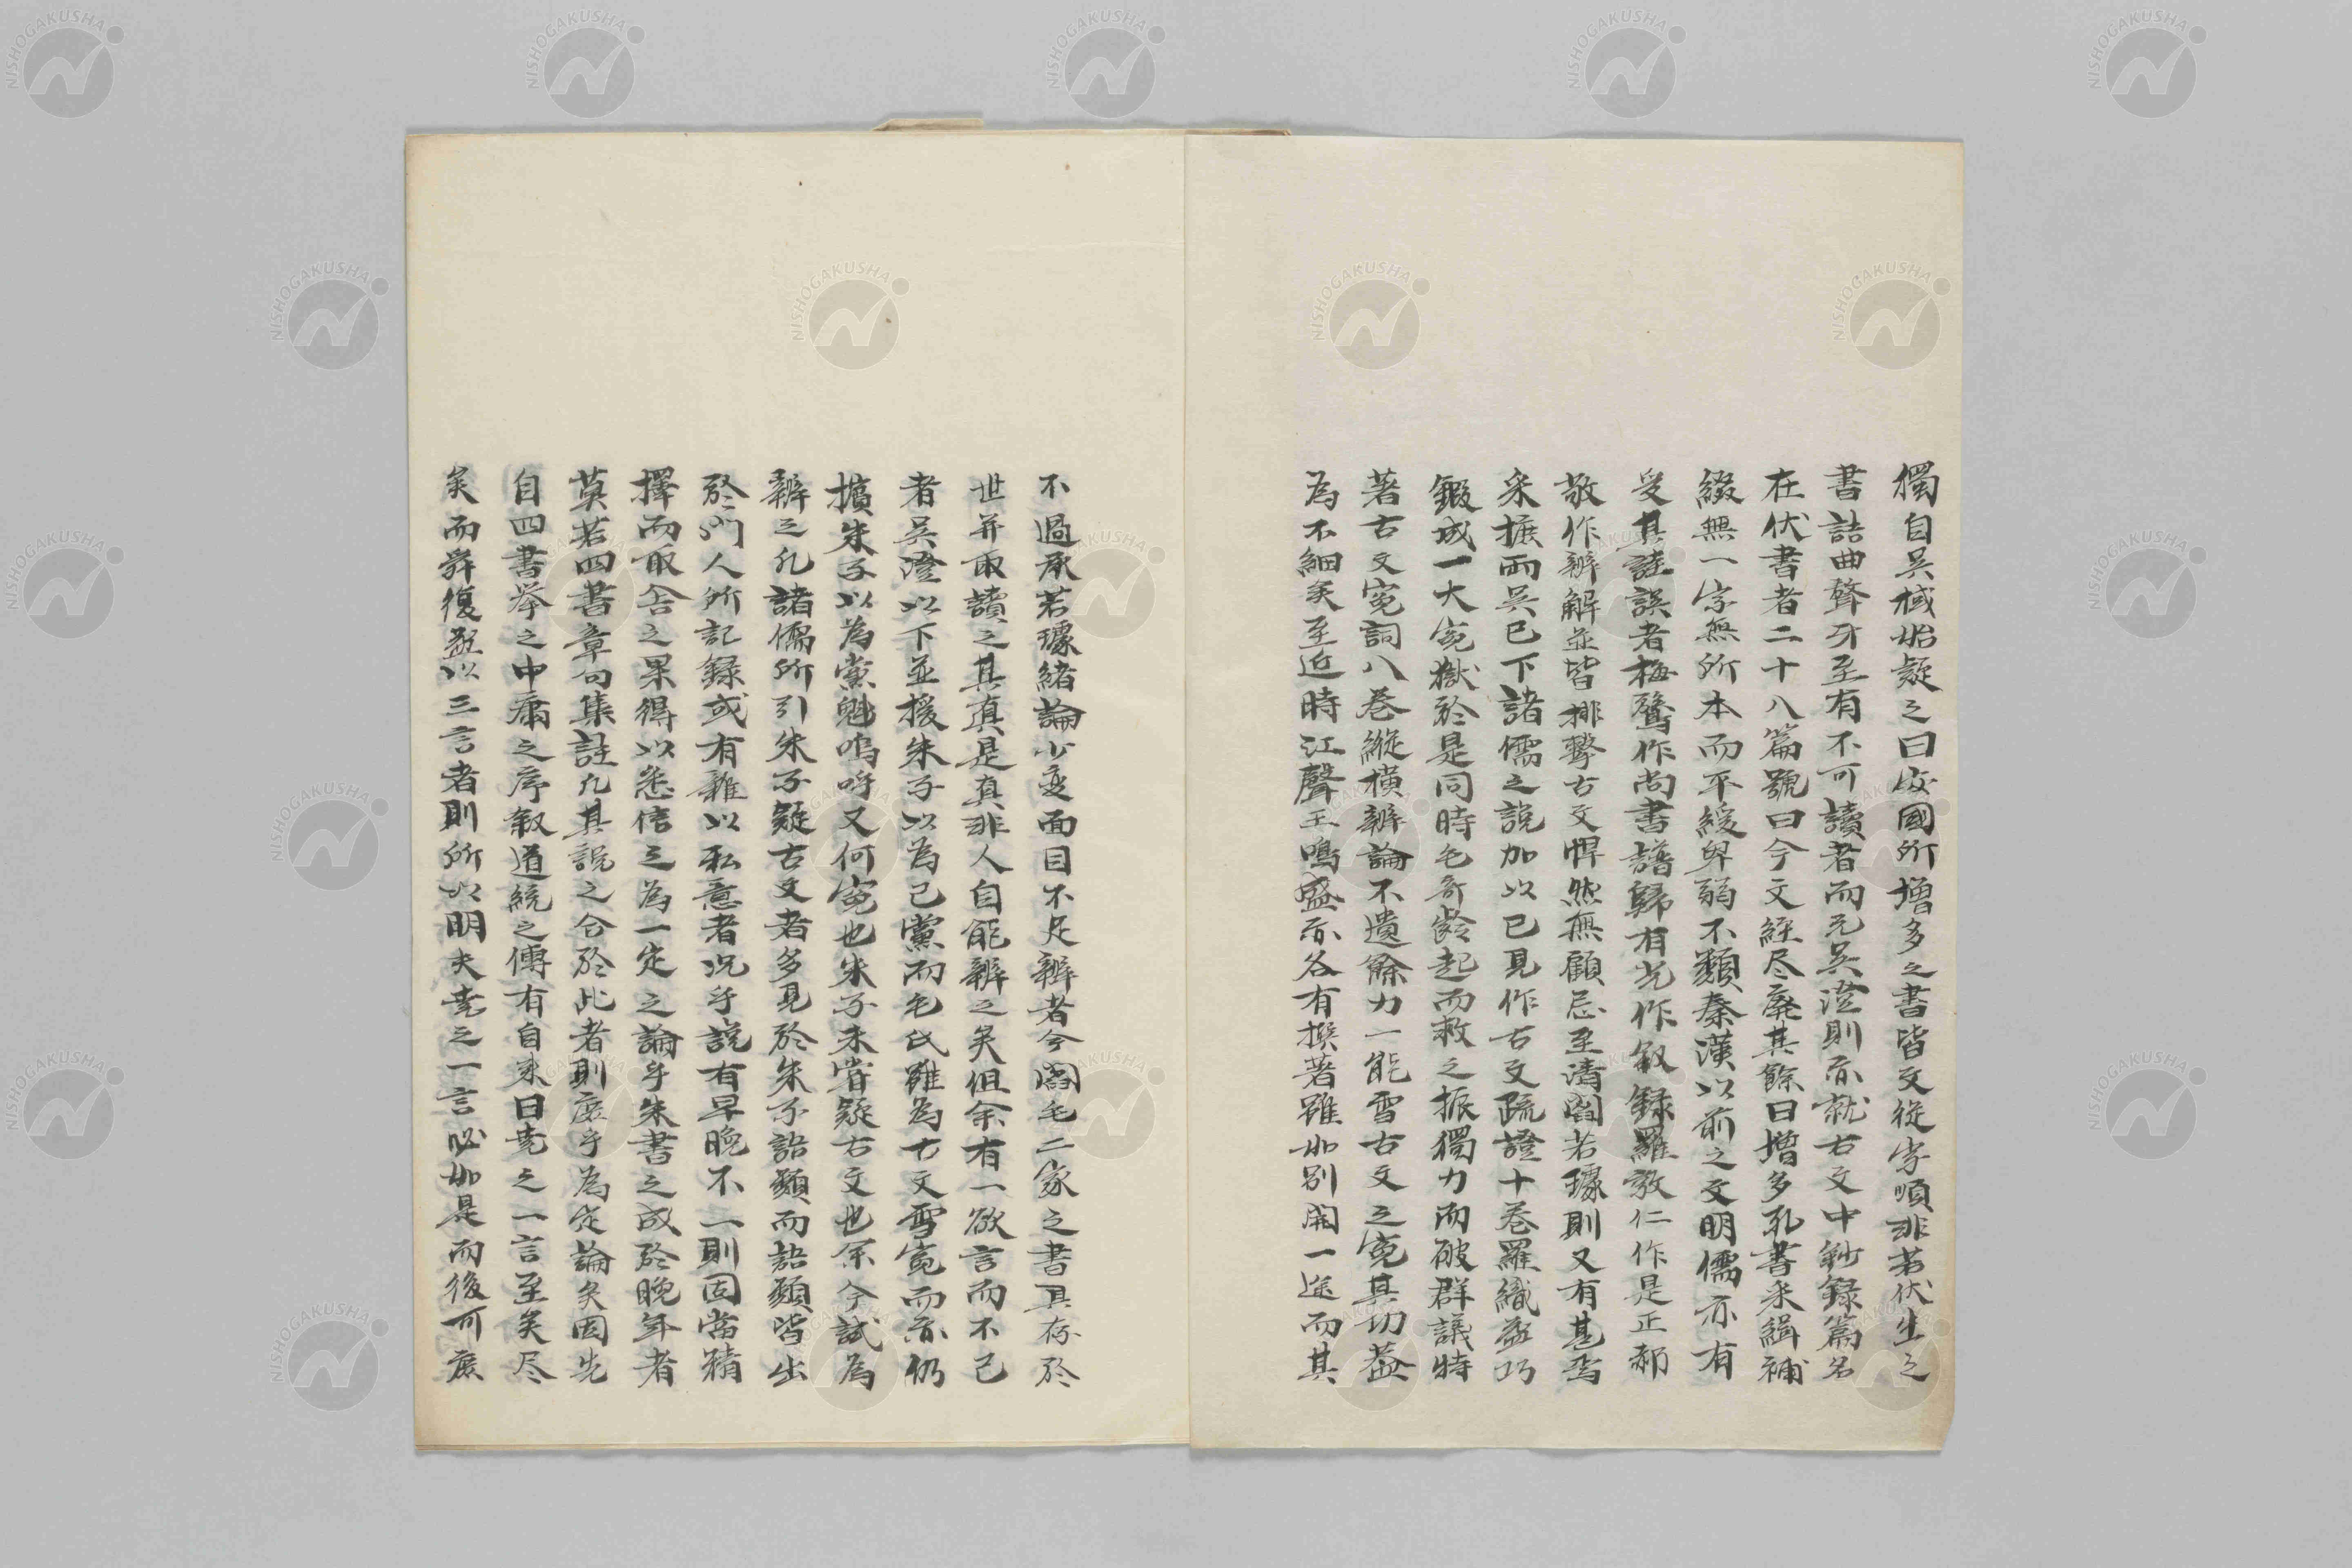 獨自吳棫始疑之曰安國所增多之書皆文從字順非若伏生之
書詰曲聱牙至有不可讀者而元吳澄則亦就古文中鈔錄篇名
在伏書者二十八篇號曰今文經尽廢其餘曰增多孔書采緝補
綴無一字無所本而平緩卑弱不類秦漢以前之文明儒亦有
受其詿誤者梅鷟作尚書譜歸有光作叙録羅敦仁作是正郝
敬作辨解並皆排擊古文悍然無顧忌至清閻若璩則又有甚焉
采摭両吳已下諸儒之説加以已見作古文疏證十卷羅織益巧
鍛成一大寃獄於是同時毛奇齡起而救之振獨力而破群議特
著古文寃詞八卷縱橫辨論不遺餘力一能雪古文之寃其功益
為不細矣至近時江聲王鳴盛亦各有撰著雖如別開一途而其
不過承若璩緒論少変面目不足辨者今閻毛二家之書具存於
世并取讀之其真是真非人自能辨之矣但余有一欲言而不已
者吳澄以下並援朱子以為己黨而毛氏雖為古文雪寃而亦仍
擯朱子以為黨魁嗚呼又何寃也朱子未嘗疑古文也余今試為
辨之凡諸儒所引朱子疑古文者多見於朱子語類而語類皆出
於門人所記録或有雜以私意者况乎説有早晚不一則固當精
擇而取舍之果得以悉信之為一定之論乎朱書之成於晚年者
莫若四書章句集註凡其說之合於此者則庶乎為定論矣因先
自四書挙之中庸之序叙道統之傳有自來曰堯之一言至矣尽
矣而舜復益以三言者則所以明夫堯之一言必如是而後可庶